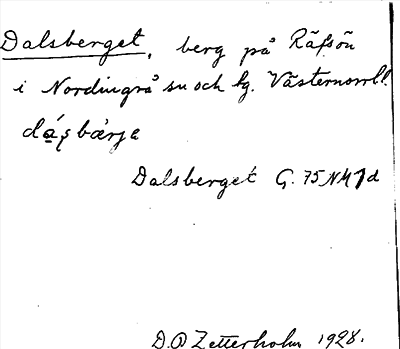 Dalsberget, berg på Räfsön
i Nordingrå sn och fg. Västernorrl.l.
dáʂbærja
Dalsberget G. 75 NM 7 d
D.O Zetterholm 1928.